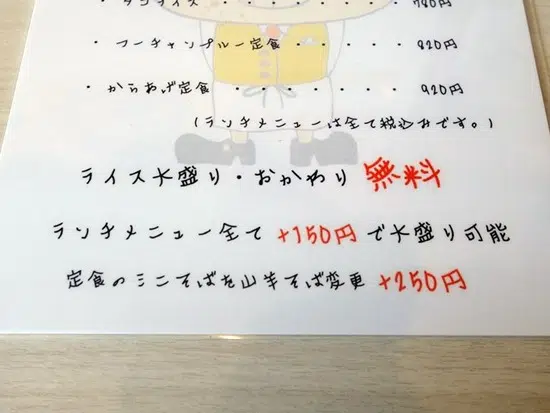 ・ タコライス ・・・・・・・ 780円
・ フーチャンプルー定食 ・・・・・ 820円
・ からあげ定食 ・・・・・・・ 920円
(ランチメニューは全て税込みです。)
ライス大盛り・おかわり 無料
ランチメニュー全て +150円で大盛り可能
定食のミニそばを山羊そば変更 +250円